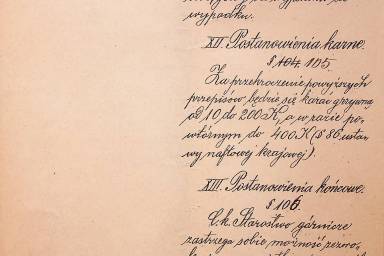 wypadku.
XII. Postanowienia karne.
§ 104. 105.
Za przekroczenie powyższych
przepisów będzie się karać grzywną
od 10 do 200 K, a w razie po-
wtórnym do 400 K (§ 86 usta-
wy naftowej krajowej).
XIII. Postanowienia końcowe.
§ 106.
C. k. Starostwo górnicze
zastrzega sobie możność zezwo-